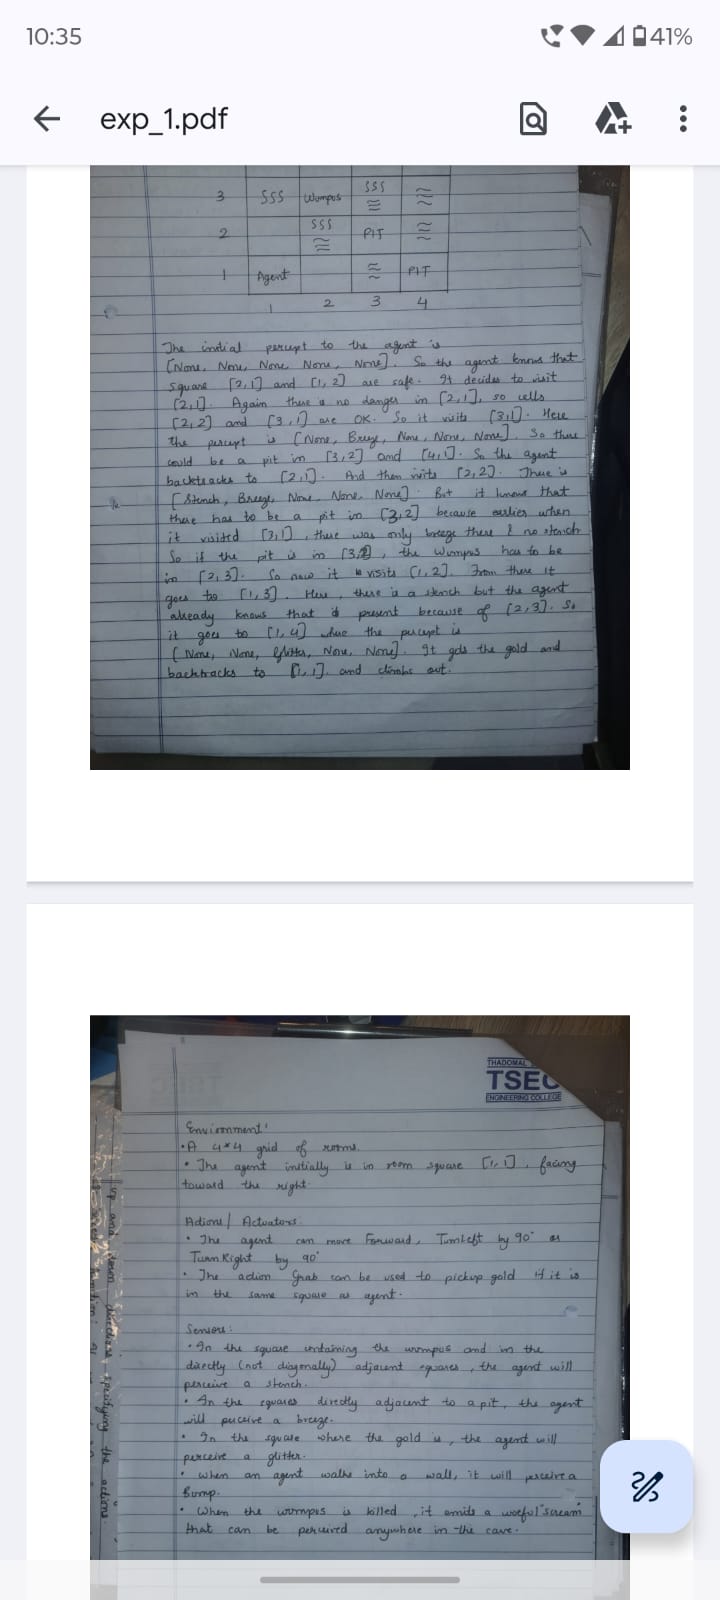 10:35
41%
exp_1.pdf
3 SSS Wumpus SSS
2 SSS PIT
1 Agent PIT
1 2 3 4
The initial percept to the agent is
[None, None, None, None, None]. So the agent knows that
square [2,1] and [1,2] are safe. It decides to visit
[2,1]. Again there is no danger in [2,1], so cells
[2,2] and [3,1] are OK. So it visits [3,1]. Here
the percept is [None, Breeze, None, None, None]. So there
could be a pit in [3,2] and [4,1]. So the agent
backtracks to [2,1]. And then visits [2,2]. There is
[Stench, Breeze, None, None, None]. But it knows that
there has to be a pit in [3,2] because earlier when
it visited [3,1], there was only breeze there & no stench
So if the pit is in [3,2], the Wumpus has to be
in [2,3]. So now it visits [1,2]. From there it
goes to [1,3]. Here, there is a stench but the agent
already knows that is present because of [2,3]. So
it goes to [1,4] where the percept is
[None, None, Glitter, None, None]. It gets the gold and
backtracks to [1,1]. and climbs out.
THADOMAL
TSEC
ENGINEERING COLLEGE
Environment:
• A 4*4 grid of rooms.
• The agent initially is in room square [1,1], facing
toward the right.
Actions / Actuators:
• The agent can move Forward, TurnLeft by 90° or
TurnRight by 90°
• The action Grab can be used to pickup gold if it is
in the same square as agent.
Sensors:
• In the square containing the wumpus and in the
directly (not diagonally) adjacent squares, the agent will
perceive a stench.
• In the squares directly adjacent to a pit, the agent
will perceive a breeze.
• In the square where the gold is, the agent will
perceive a glitter.
• When an agent walks into a wall, it will perceive a
Bump.
• When the wumpus is killed, it emits a woeful scream
that can be perceived anywhere in the cave.
up and down specifying the actions.